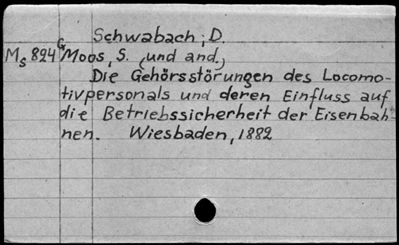 Schwabach, D.
Ms 824 G Moos, S. (und and.)
Die Gehörsstörungen des Locomo-
tivpersonals und deren Einfluss auf
die Betriebssicherheit der Eisenbah-
nen. Wiesbaden, 1882